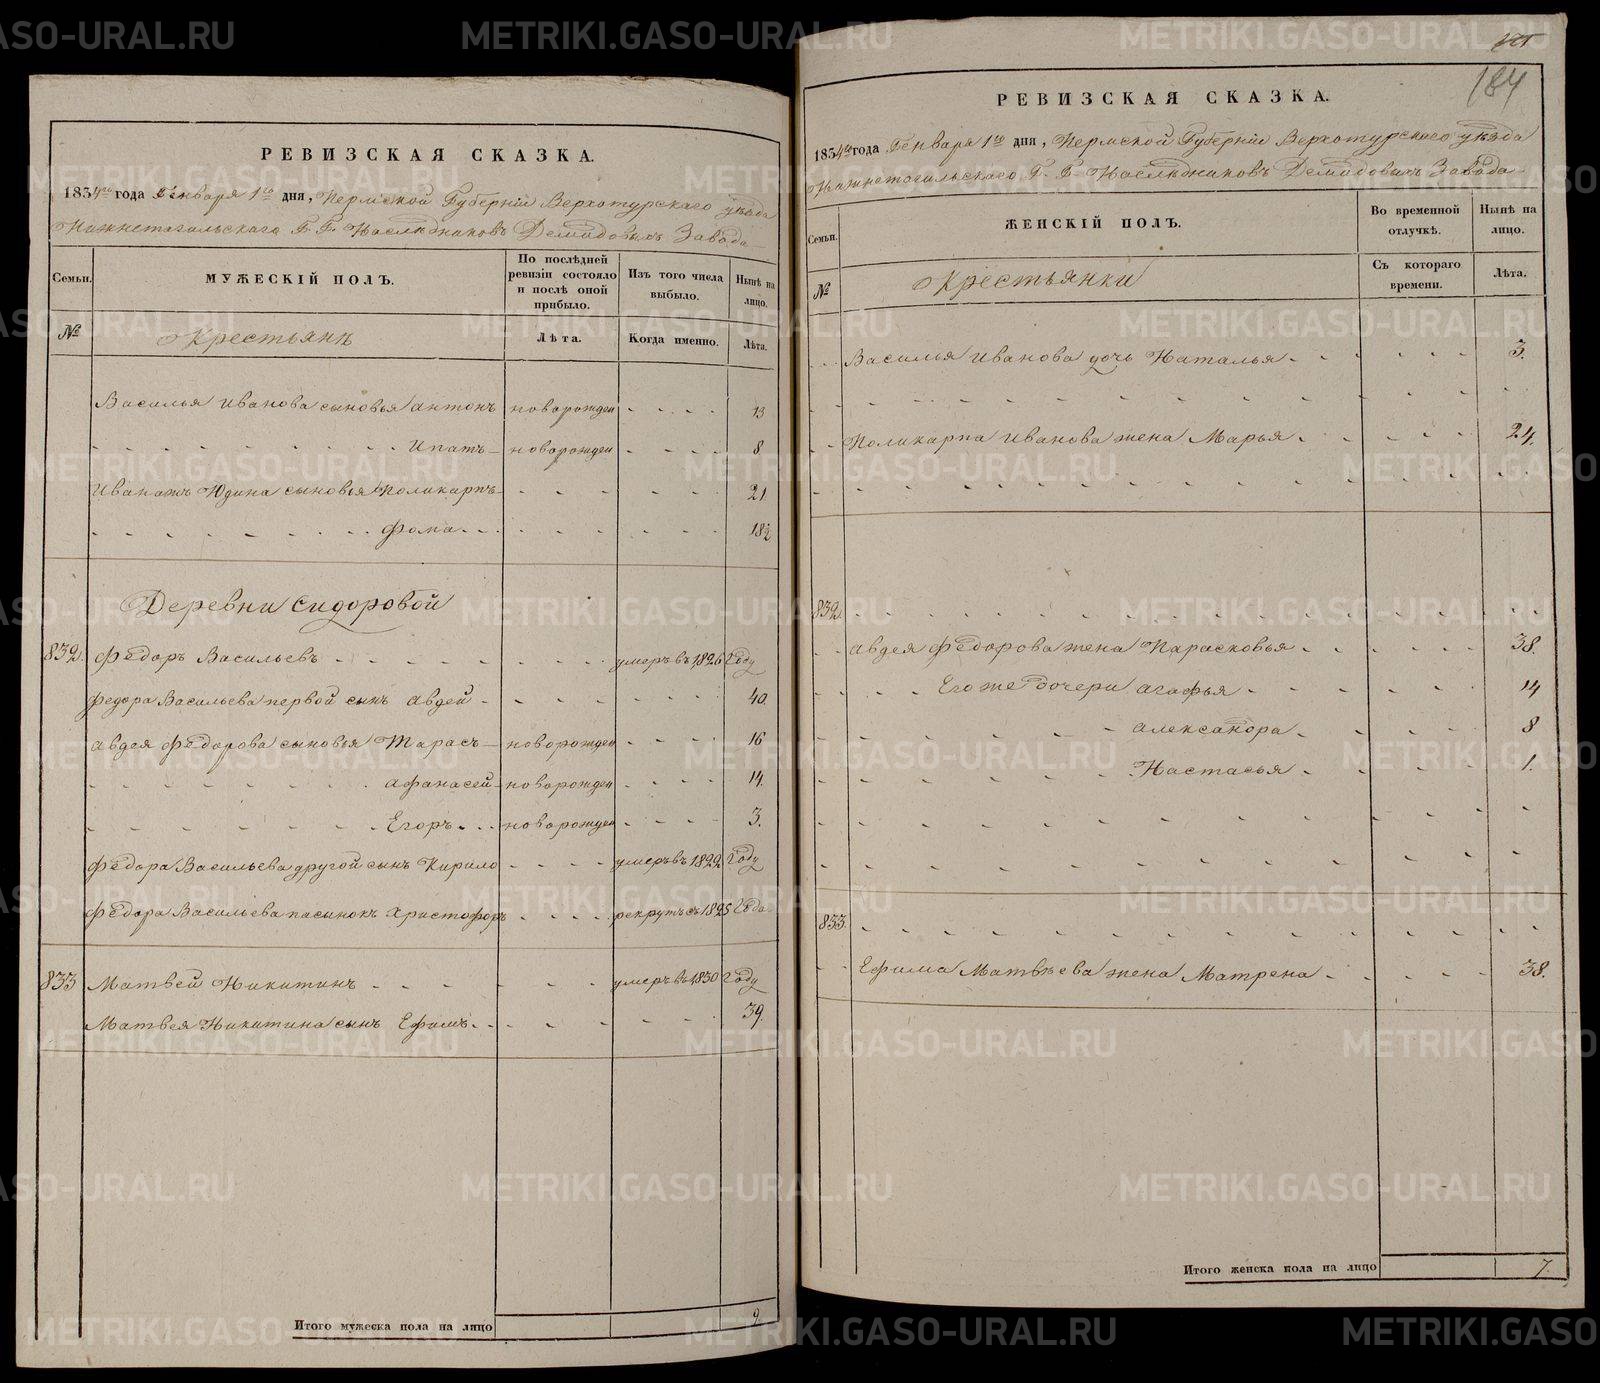 РЕВИЗСКАЯ СКАЗКА.
1834го года Генваря 1го дня, Пермской Губернии Верхотурского уѣзда
Нижнетагильскаго Г. Г. Наслѣдниковъ Демидовыхъ Завода
Семьи.
МУЖЕСКІЙ ПОЛЪ.
По послѣдней ревизіи состояло и послѣ оной прибыло.
Изъ того числа выбыло.
Нынѣ на лицо.
№
Крестьянъ
Лѣта.
Когда именно.
Лѣта.
Василья Иванова сыновья Антонъ новорожден 13
Ипатъ новорожден 8
Юдина сыновья Поликарпъ 21
Фома 18½
Деревни Сидоровой
832. Федоръ Васильевъ умеръ въ 1826 Году
Федора Васильева первой сынъ Авдей 40.
Авдея Федорова сыновья Тарасъ новорожден 16
Афанасей новорожден 14.
Егоръ новорожден 3.
Федора Васильева другой сынъ Кирило умеръ въ 1822 Году
Федора Васильева пасынокъ Христофоръ рекрутъ съ 1825 Года
833 Матвей Никитинъ умеръ въ 1830 Году
Матвея Никитина сынъ Ефимъ 39.
Итого мужеска пола на лицо 9.
184
РЕВИЗСКАЯ СКАЗКА.
1834го года Генваря 1го дня, Пермской Губерніи Верхотурскаго уѣзда
Нижнетагильскаго Г. Г. Наслѣдниковъ Демидовыхъ Завода
Семьи.
ЖЕНСКІЙ ПОЛЪ.
Во временной отлучкѣ.
Нынѣ на лицо.
№
Крестьянки
Съ котораго времени.
Лѣта.
Василья Иванова дочь Наталья 3.
Поликарпа Иванова жена Марья 24.
832.
Авдея Федорова жена Парасковья 38.
Его же дочери Агафья 14
Александра 8
Настасья 1.
833.
Ефима Матвѣева жена Матрена 38.
Итого женска пола на лицо 7.
METRIKI.GASO-URAL.RU